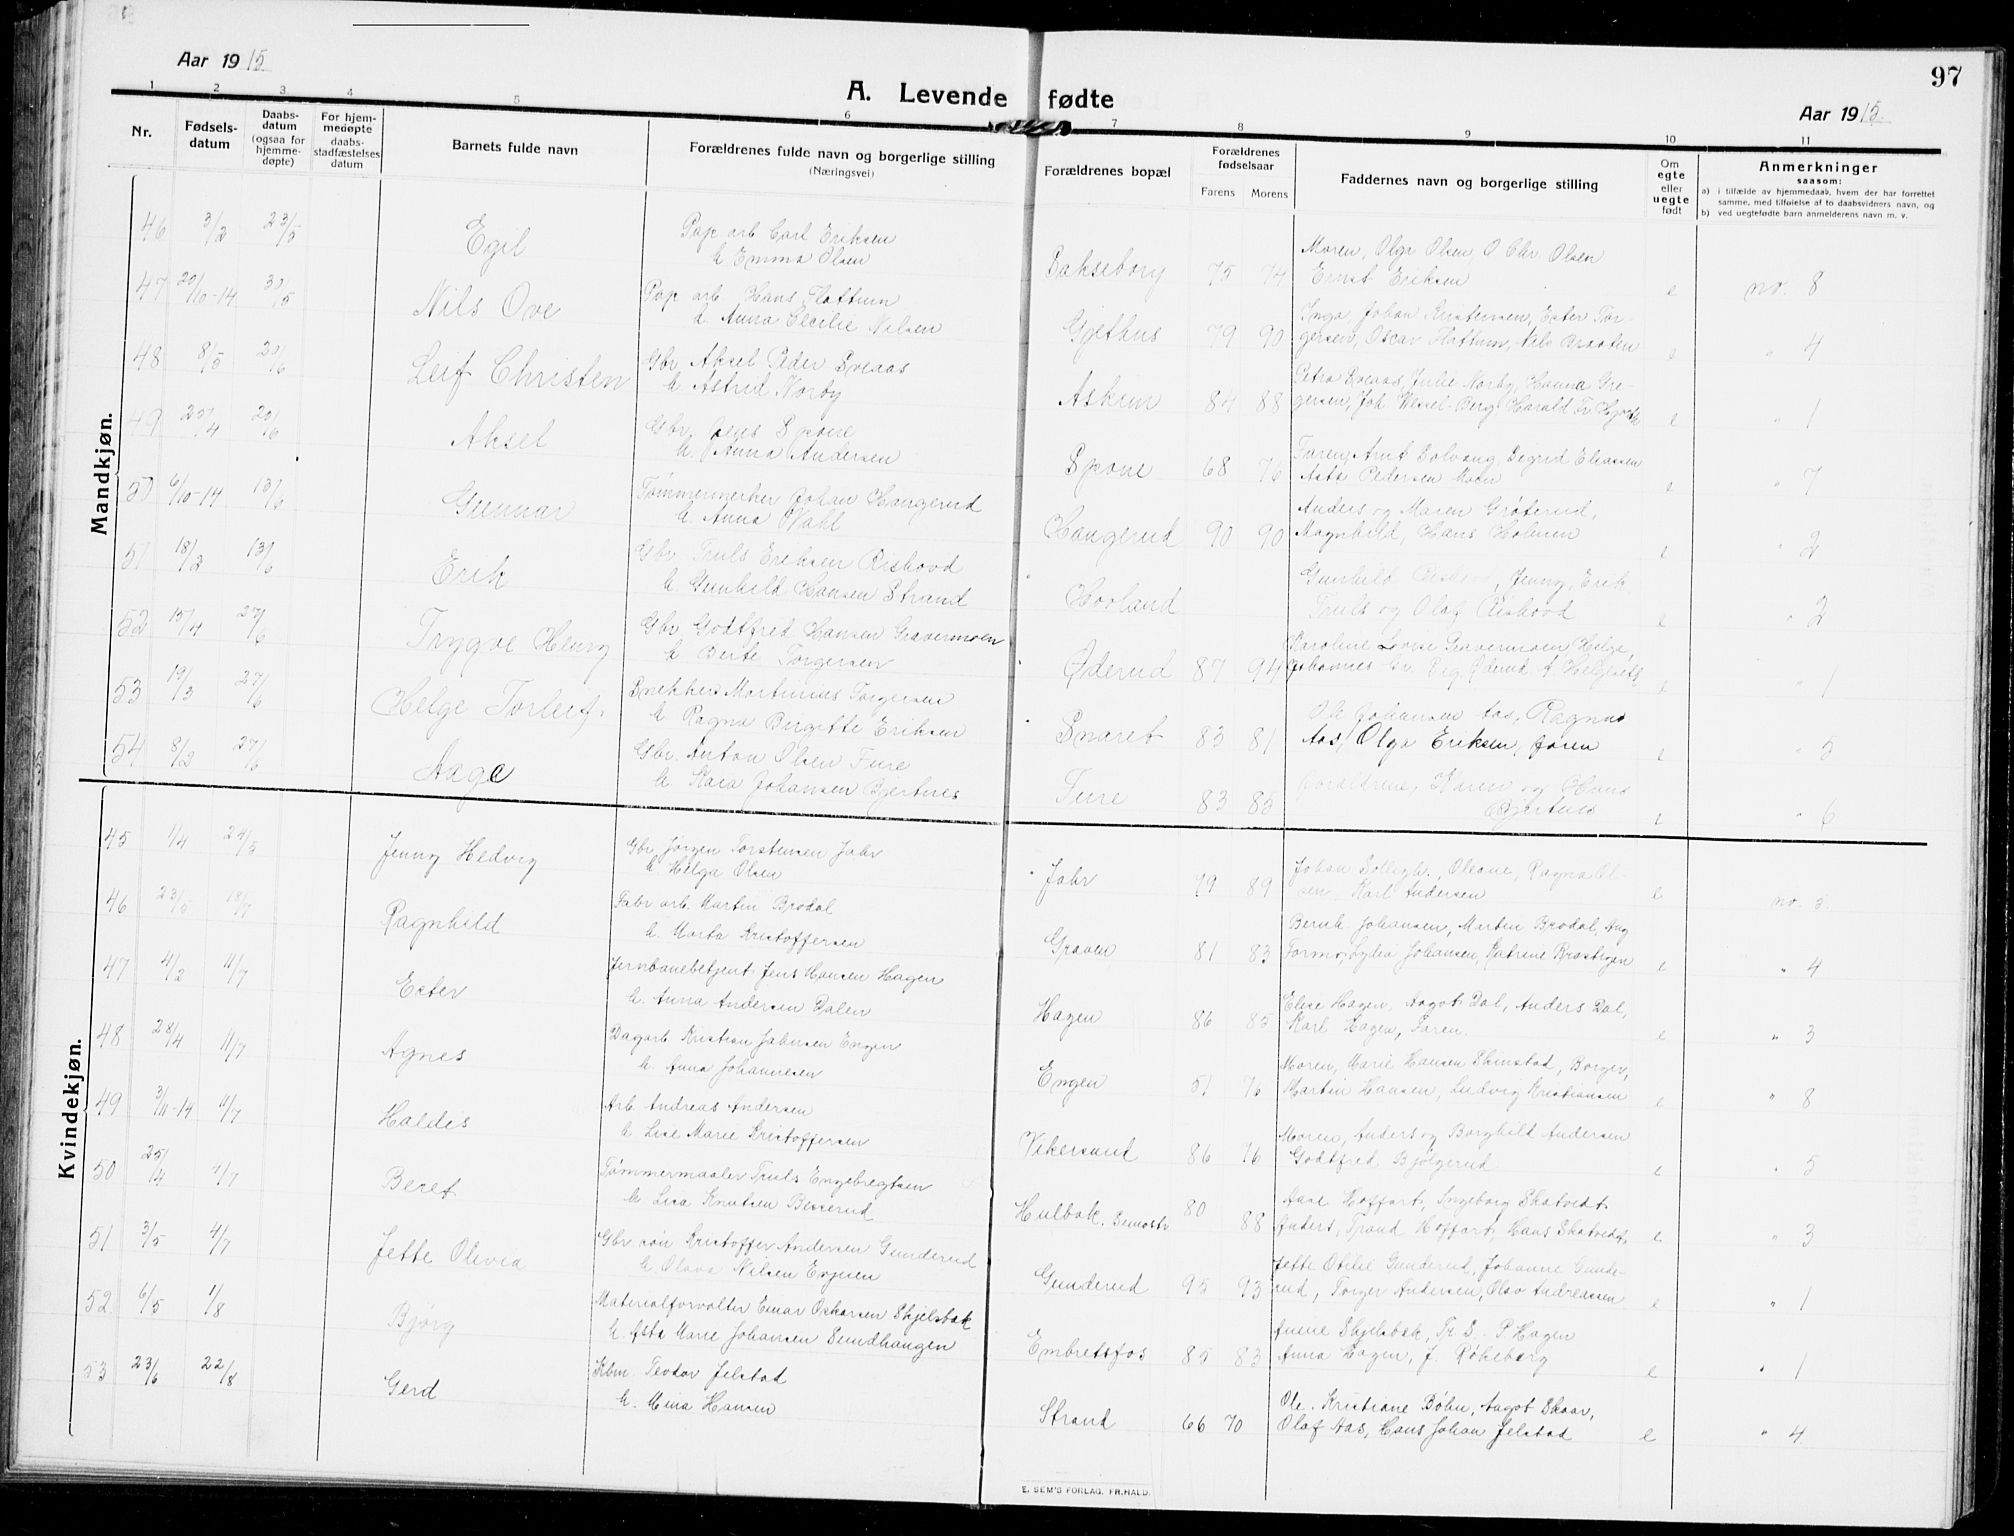 Aar 1915
97
A. Levende fødte
Aar 1915
1 2 3 4 5 6 7 8 9 10 11
Nr.
Fødsels-
datum
Daabs-
datum
(ogsaa for
hjemme-
døpte)
For hjem-
medøpte
daabs-
stadfæstelses
datum
Barnets fulde navn
Forældrenes fulde navn og borgerlige stilling
(Næringsvei)
Forældrenes bopæl
Forældrenes
fødselsaar
Farens Morens
Faddernes navn og borgerlige stilling
Om
egte
eller
uegte
født
Anmerkninger
saasom:
a) i tilfælde av hjemmedaab, hvem der har forrettet
samme, med tilføielse af to daabsvidners navn, og
b) ved uegtefødte barn anmelderens navn m. v.
Mandkjøn.
46 3/2 23/5 Egil Pap arb Carl Eriksen
h Emma Olsen
Bakseborg 75 74 Moren, Olga Olsen O Chr. Olsen
Ernst Eriksen e no. 8
47 20/10-14 30/5 Nils Ove Pap arb. Hans Flattum
h. Anna Cecilie Nilsen
Gjethus 79 90 Inga, Johan Kristensen, Ester Tor-
gersen, Oscar Flattum, Nils Braaten e " 4
48 8/5 20/6 Leif Christen Gbr Aksel Peder Sveaas
h Astrid Norby
Askim 84 88 Petra Sveaas, Julie Norby, Hanna Gre-
gersen, Joh. Wessel-Berg, Harald Fr. e " 1
49 20/6 Aksel Gbr Jens Spone
h. Anna Andersen
Spone 68 76 Faren, Arnt Solvang, Sigrid Eliassen
Asta Pedersen Moen e " 7
50 6/10-14 13/6 Gunnar Tømmermerker Johan Haugerud
h. Anna Wahl
Haugerud 90 90 Anders og Maren Grøterud,
Magnhild, Hans Holmen e " 2
51 18/2 13/6 Erik Gbr Truls Eriksen Rishovd
h. Gunhild Hansen Strand
Hovland Gunhild Rishovd, Jenny, Erik
Truls og Olaf Rishovd e " 2
52 15/4 27/6 Trygve Henry Gbr Godtfred Hansen Gravermoen
h Berte Torgersen
Øderud 87 94 Karoline Lovise Gravermoen, Helge,
Johannes Øderud e " 1
53 19/3 27/6 Helge Torleif Snekker Martinius Torgersen
h Ragna Birgitte Eriksen
Snaret 83 81 Ole Johansen Aas, Ragna
Aas, Olga Eriksen, faren e " 5
54 8/2 27/6 Aage Gbr. Anton Olsen Fure
h. Kara Johansen Bjertnes
Fure 83 85 foraldrene, Karen og Hans
Bjertnes e " 6
Kvindekjøn.
45 1/4 24/5 Jenny Hedvig Gbr Jørgen Torstensen Jahr
h Helga Olsen
Jahr 79 89 Johan Oleane, Ragna Ol-
sen, Karl Andersen e no. 3.
46 23/5 18/7 Ragnhild Fabr arb. Martin Brodal
h. Marta Kristoffersen
Graven 81 83 Bernh. Johansen, Martin Brodal, Aug
Formo, Lydia Johansen, Katrine e " 4
47 4/2 11/7 Ester Jernbanebetjent Jens Hansen Hagen
h. Anna Andersen Dalen
Hagen 86 85 Elise Hagen, Aagot Dal, Anders Dal,
Karl Hagen, Faren. e " 3
48 28/4 11/7 Agnes Dagarb Kristian Jahnsen Engen
h. Anna Johannesen
Engen 51 76 Moren, Marie Hansen Skinstad, Borger,
Martin Hansen, Ludvig Kristiansen e " 8
49 3/11-14 11/7 Haldis Arb. Andreas Andersen
h Lise Marie Kristoffersen
Vikersund 86 76 Moren, Anders og Borghild Andersen
Godtfred Bjølgerud e " 5
50 25/4 4/7 Beret Tømmermaaler Truls Engebregtsen
h Lisa Knutsen Besserud
Hulbak. 80 88 Aase Hoffart, Ingeborg Skatvedt
Anders, Trond Hoffart, Hans Skatvedt, e " 3
51 3/5 4/7 Jette Olivia Gbr søn Kristoffer Andersen Gunderud
h Olava Nilsen Enjuen
Gunderud 95 93 Jette Otilie Gunderud, Johanne Gunde-
rud, Torger Andersen, Olav Andreassen e " 1
52 6/5 1/8 Bjørg Materialforvalter Einar Oskarsen Skjelsbæk
h. Asta Marie Johansen Sundhaugen
Embretsfos 85 83 Anene Skjelsbæk, Tr S. P Hagen
Anna Hagen, J. Røkeberg e " 1
53 23/6 22/8 Gerd Kbm. Teodor Jelstad
h. Mina Hansen
Strand 66 70 Ole. Kristiane Bøhn, Aagot Skaar,
Olaf Aas, Hans Johan Jelstad e " 4
E. SEM'S FORLAG. FR.HALD.